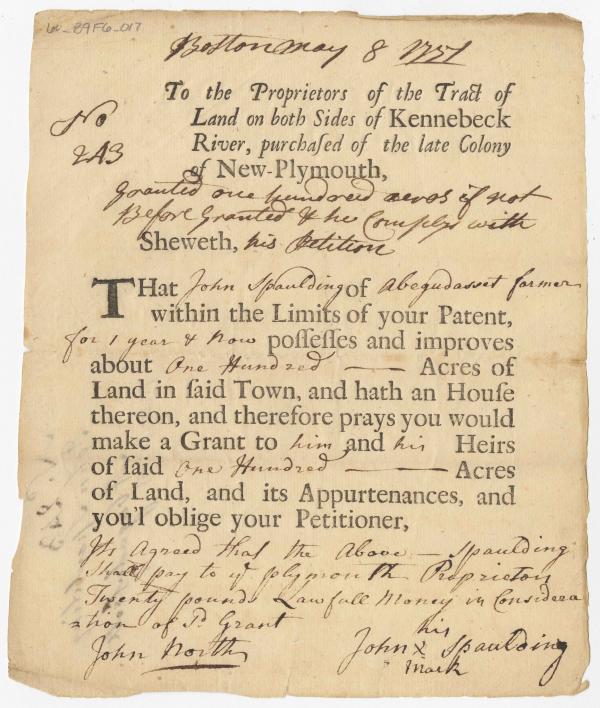 Boston May 8 1751
To the Proprietors of the Tract of
Land on both Sides of Kennebeck
River, purchaſed of the late Colony
of New-Plymouth,
No
243
Granted one hundred acres if not
Before Granted & he Complys with
Sheweth, his Petition
THat John Spaulding of Abegudasset farmer
within the Limits of your Patent,
for 1 year & Now poſſeſſes and improves
about One Hundred —— Acres of
Land in ſaid Town, and hath an Houſe
thereon, and therefore prays you would
make a Grant to him and his Heirs
of ſaid One Hundred —— Acres
of Land, and its Appurtenances, and
you'l oblige your Petitioner,
Its Agreed that the Above — Spaulding
Shall pay to ye plymouth Proprietors
Twenty pounds Lawfull Money in Considera
ation of Sd Grant
John North
his
John X Spaulding
Mark